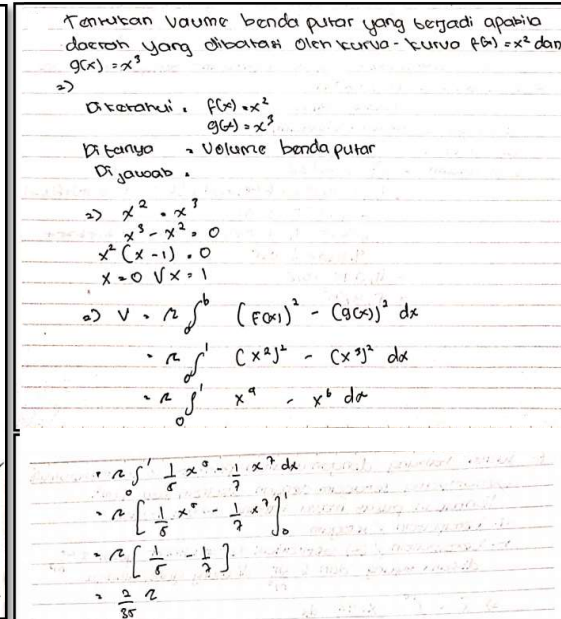 Tentukan Volume benda putar yang terjadi apabila
daerah yang dibatasi oleh kurva-kurva f(x) = x² dan
g(x) = x³
=>
Diketahui : f(x) = x²
g(x) = x³
Ditanya = Volume benda putar
Dijawab :
=> x² = x³
x³ - x² = 0
x² (x - 1) = 0
x = 0 ∨ x = 1
=> V = π ∫ₐᵇ (f(x))² - (g(x))² dx
= π ∫₀¹ (x²)² - (x³)² dx
= π ∫₀¹ x⁴ - x⁶ dx
= π ∫₀¹ 1/5 x⁵ - 1/7 x⁷ dx
= π [ 1/5 x⁵ - 1/7 x⁷ ]₀¹
= π [ 1/5 - 1/7 ]
= 2/35 π